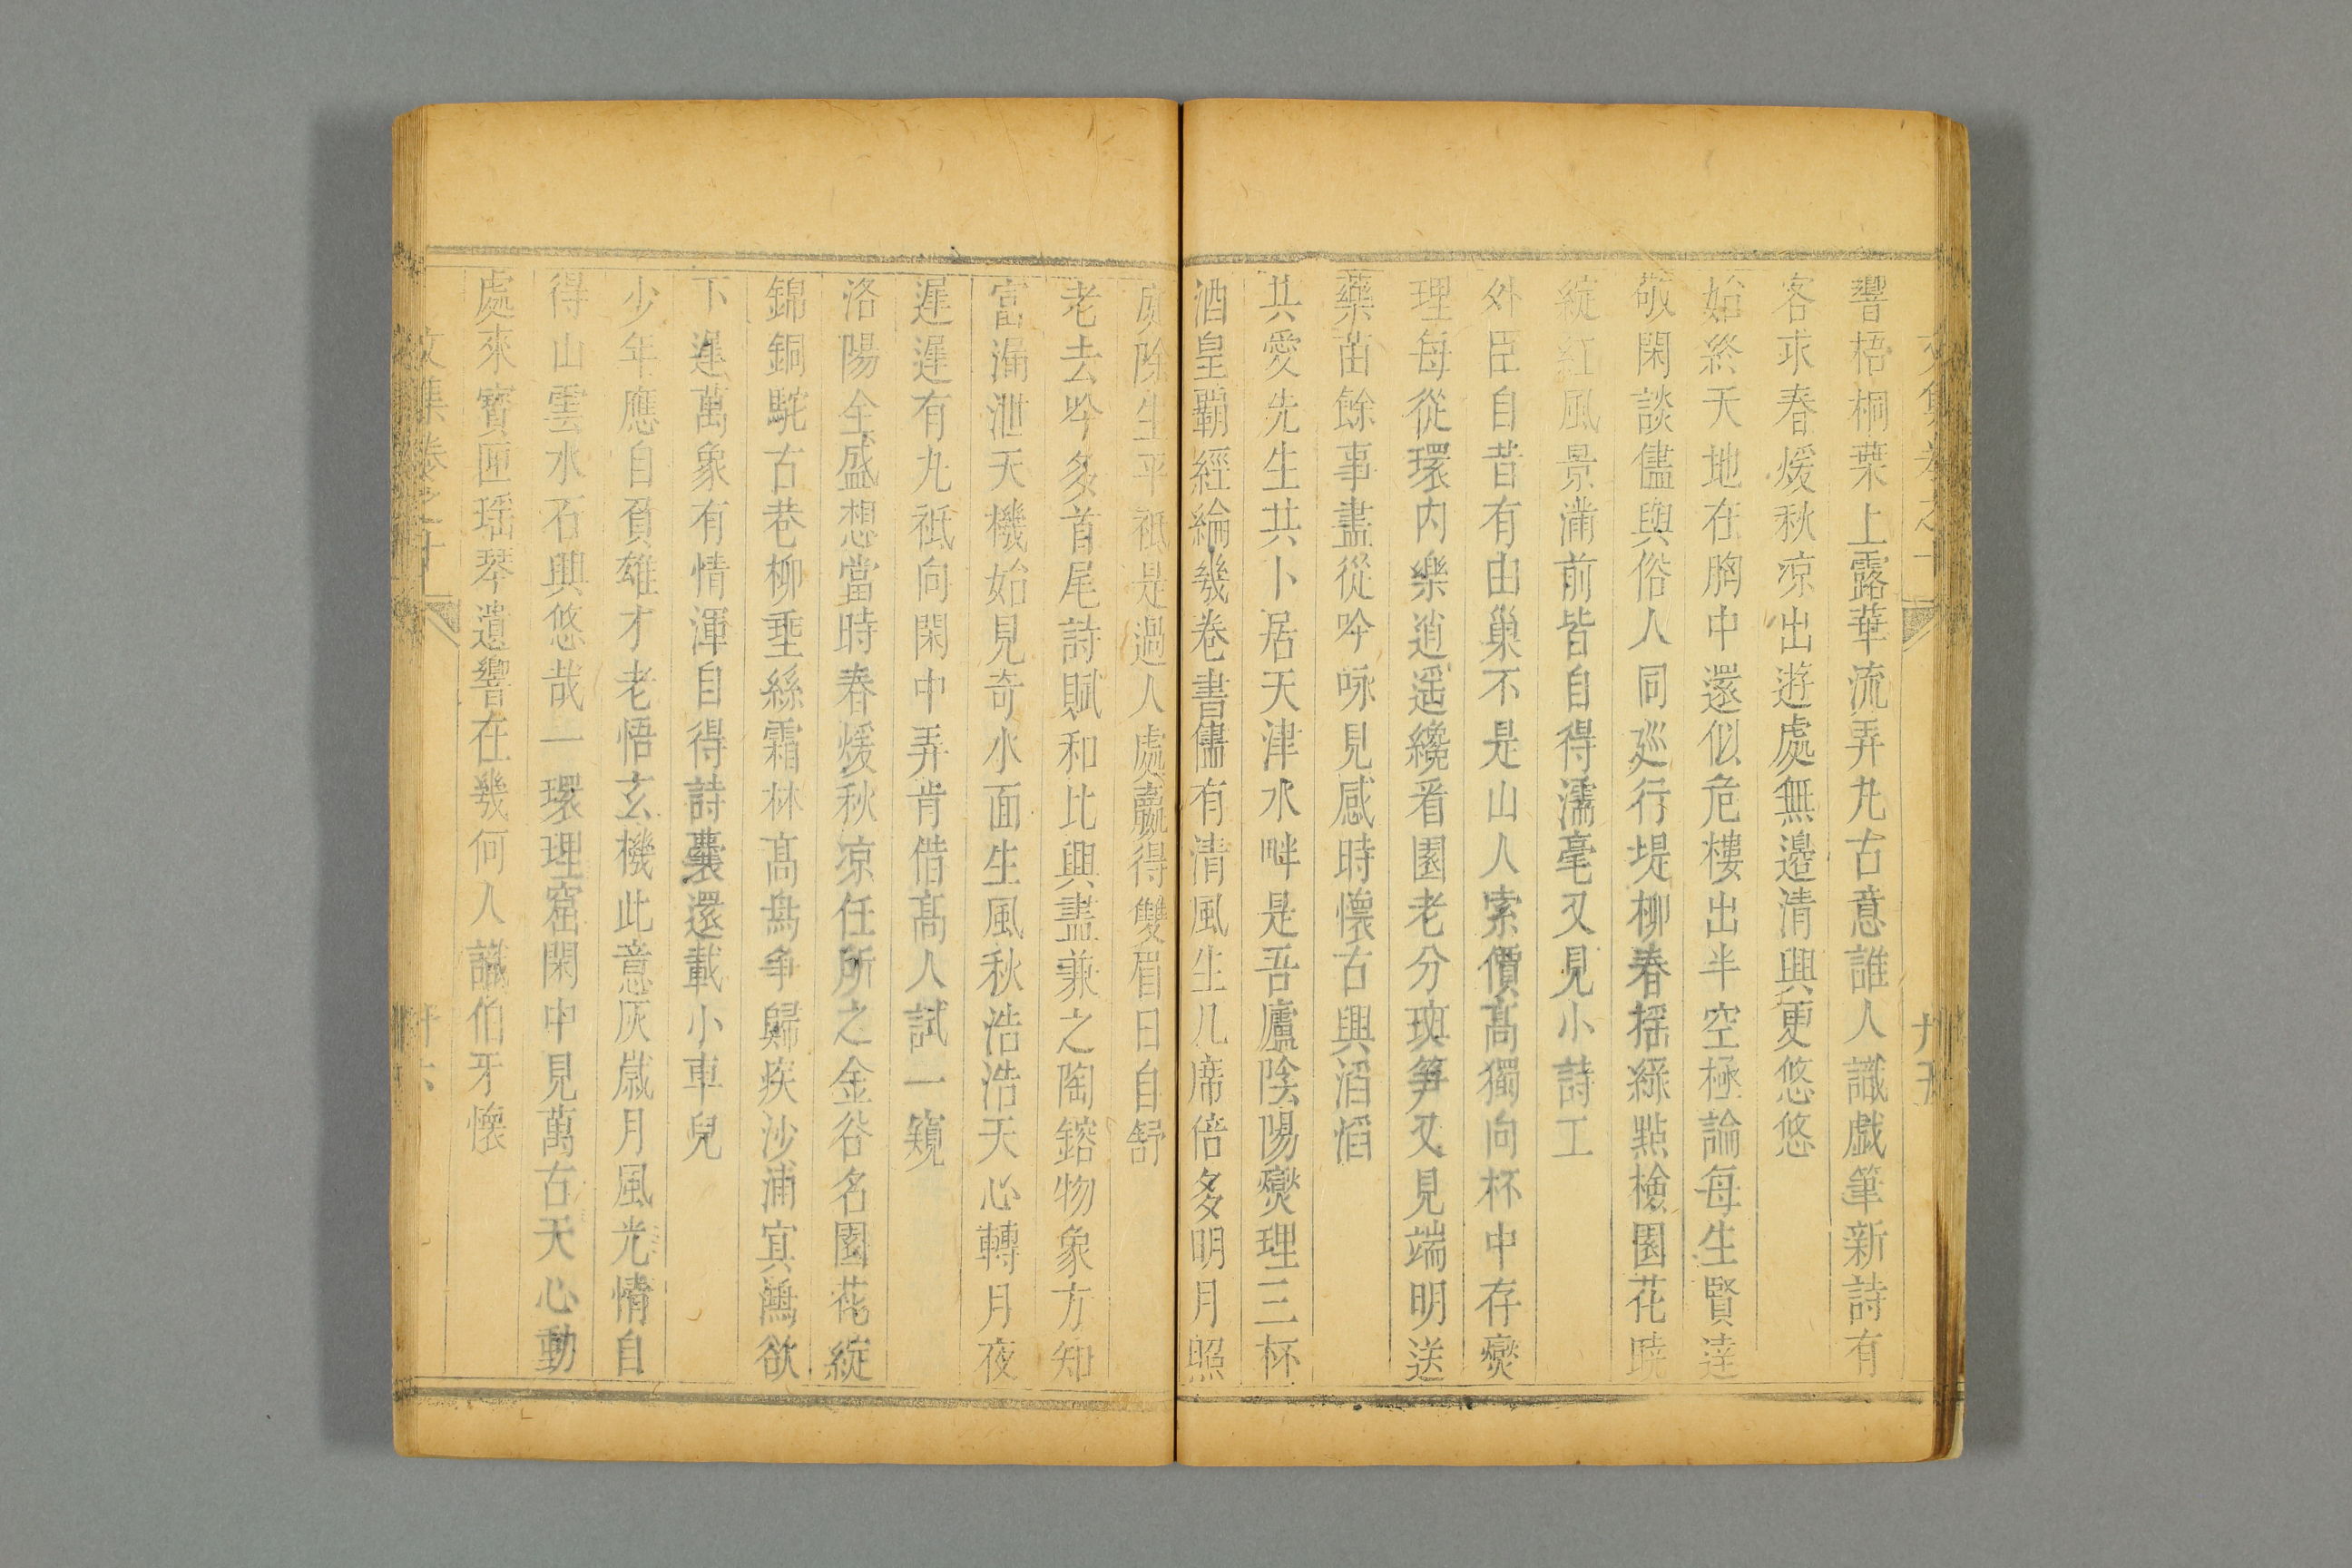 響梧桐葉上露華流弄丸古意誰人識戱筆新詩有
客求春煖秋凉出遊處無邉清興更悠悠
始終天地在胸中還似危樓出半空極論每生賢逹
敬閑談儘與俗人同廵行堤柳春揺綠點檢園花曉
綻紅風景滿前皆自得濡毫又見小詩工
外臣自昔有由巢不是山人索價髙獨向杯中存爕
理每從環内樂逍遥纔看園老分瑛笋又見端明送
藥苗餘事盡從吟咏見感時懷古興滔滔
共愛先生共卜居天津水畔是吾廬陰陽爕理三杯
酒皇覇經綸幾卷書儘有清風生几席倍多明月照
庭除生平祗是過人處贏得雙眉日自舒
老去吟多首尾詩賦和比興盡兼之陶鎔物象方知
當漏泄天機始見奇水面生風秋浩浩天心轉月夜
遲遲有丸祗向閑中弄肯借髙人試一窺
洛陽全盛想當時春煖秋凉任所之金谷名園花綻
錦銅駝古巷柳垂絲霜林髙鳥争歸疾沙浦寘鴻欲
下遲萬象有情渾自得詩囊還載小車兒
少年應自負雄才老悟玄機此意灰歳月風光情自
得山雲水石興悠哉一環理窟閑中見萬古天心動
處來寳匣瑶琴遺響在幾何人識伯牙懷